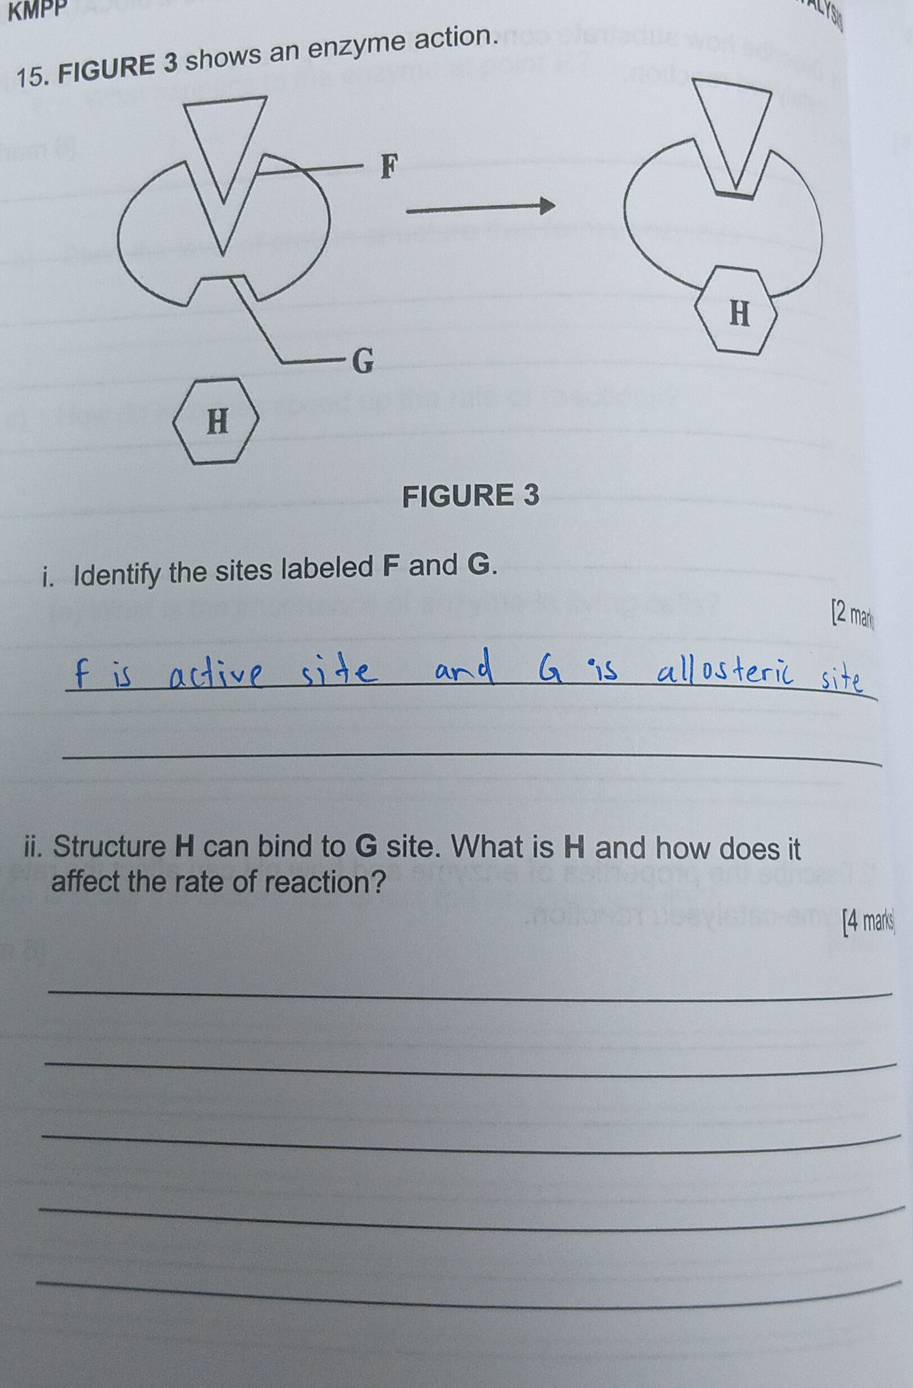 KMPP
15. FIGURE 3 shows an enzyme action.
F
G
H
H
FIGURE 3
i. Identify the sites labeled F and G.
[2 mark
f is active site and G is allosteric site
ii. Structure H can bind to G site. What is H and how does it
affect the rate of reaction?
[4 marks]